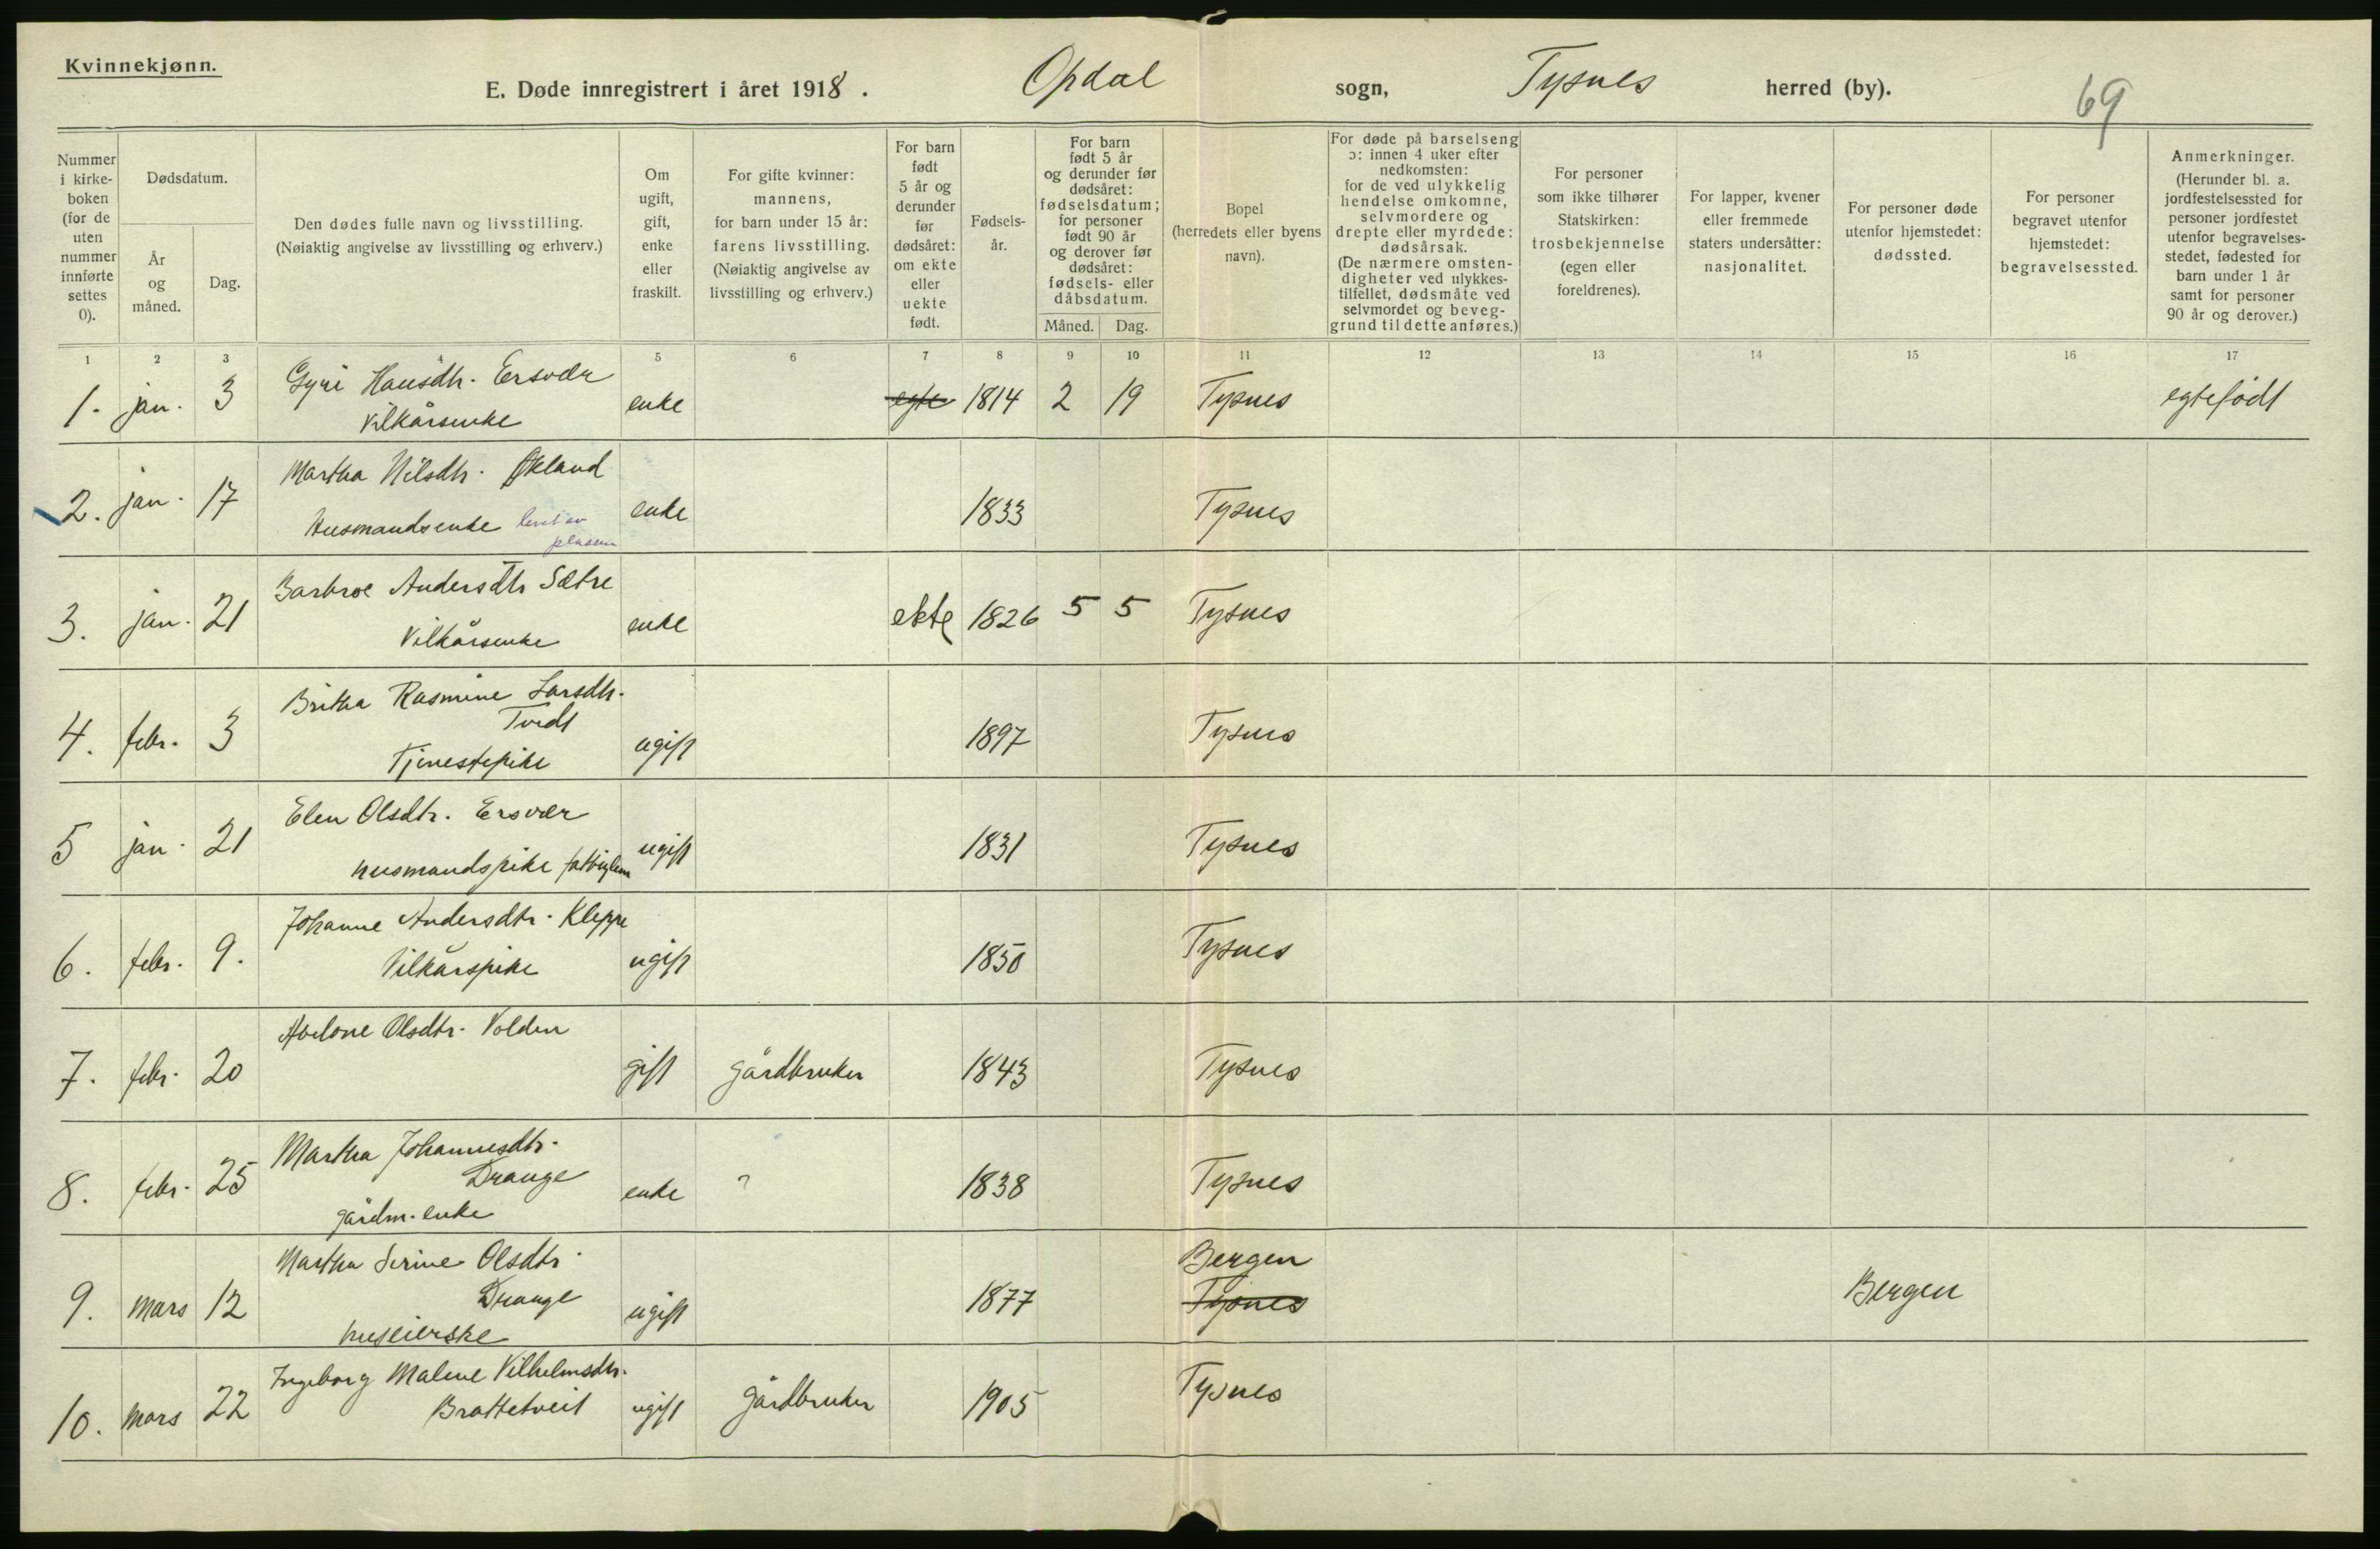 Kvinnekjønn.
E. Døde innregistrert i året 1918. Opdal sogn, Tysnes herred (by). 69
Nummer i kirke-boken (for de uten nummer innførte settes 0).
Dødsdatum.
År og måned.
Dag.
Den dødes fulle navn og livsstilling.
(Nøiaktig angivelse av livsstilling og erhverv.)
Om ugift, gift, enke eller fraskilt.
For gifte kvinner: mannens, for barn under 15 år: farens livsstilling. (Nøiaktig angivelse av livsstilling og erhverv.)
For barn født 5 år og derunder før dødsåret: om ekte eller uekte født.
Fødsels-år.
For barn født 5 år og derunder før dødsåret: fødselsdatum; for personer født 90 år og derover før dødsåret: fødsels- eller dåbsdatum.
Måned. Dag.
Bopel (herredets eller byens navn).
For døde på barselseng ɔ: innen 4 uker efter nedkomsten: for de ved ulykkelig hendelse omkomne, selvmordere og drepte eller myrdede: dødsårsak. (De nærmere omsten-digheter ved ulykkes-tilfellet, dødsmåte ved selvmordet og beveg-grund til dette anføres.)
For personer som ikke tilhører Statskirken: trosbekjennelse (egen eller foreldrenes).
For lapper, kvener eller fremmede staters undersåtter: nasjonalitet.
For personer døde utenfor hjemstedet: dødssted.
For personer begravet utenfor hjemstedet: begravelsessted.
Anmerkninger. (Herunder bl. a. jordfestelsessted for personer jordfestet utenfor begravelses-stedet, fødested for barn under 1 år samt for personer 90 år og derover.)
1 2 3 4 5 6 7 8 9 10 11 12 13 14 15 16 17
1. jan. 3 Gyri Hansdtr. Ersvær
Vilkårsenke enke egte 1814 2 19 Tysnes egtefødt
2. jan. 17 Martha Nilsdtr. Økland
Husmandsenke levet av plassen enke 1833 Tysnes
3. jan. 21 Barbroe Andersdtr Sætre
Vilkårsenke enke ekte 1826 5 5 Tysnes
4. febr. 3 Britha Rasmine Larsdtr.
Tvedt
Tjenestepike ugift 1897 Tysnes
5 jan. 21 Elen Olsdtr. Ersvær
husmandspike fattiglem ugift 1831 Tysnes
6. febr. 9. Johanne Andersdtr. Kleppe
Vilkårspike ugift 1850 Tysnes
7. febr. 20 Avelone Olsdtr. Volden
gift gårdbruker 1843 Tysnes
8. febr. 25 Martha Johannesdtr.
Drange
gårdm. enke enke ? 1838 Tysnes
9. mars 12 Martha Serine Olsdtr.
Drange
huseierske ugift 1877 Bergen
Tysnes Bergen
10. mars 22 Ingeborg Malene Vilhelmsdtr.
Brattetveit ugift gårdbruker 1905 Tysnes